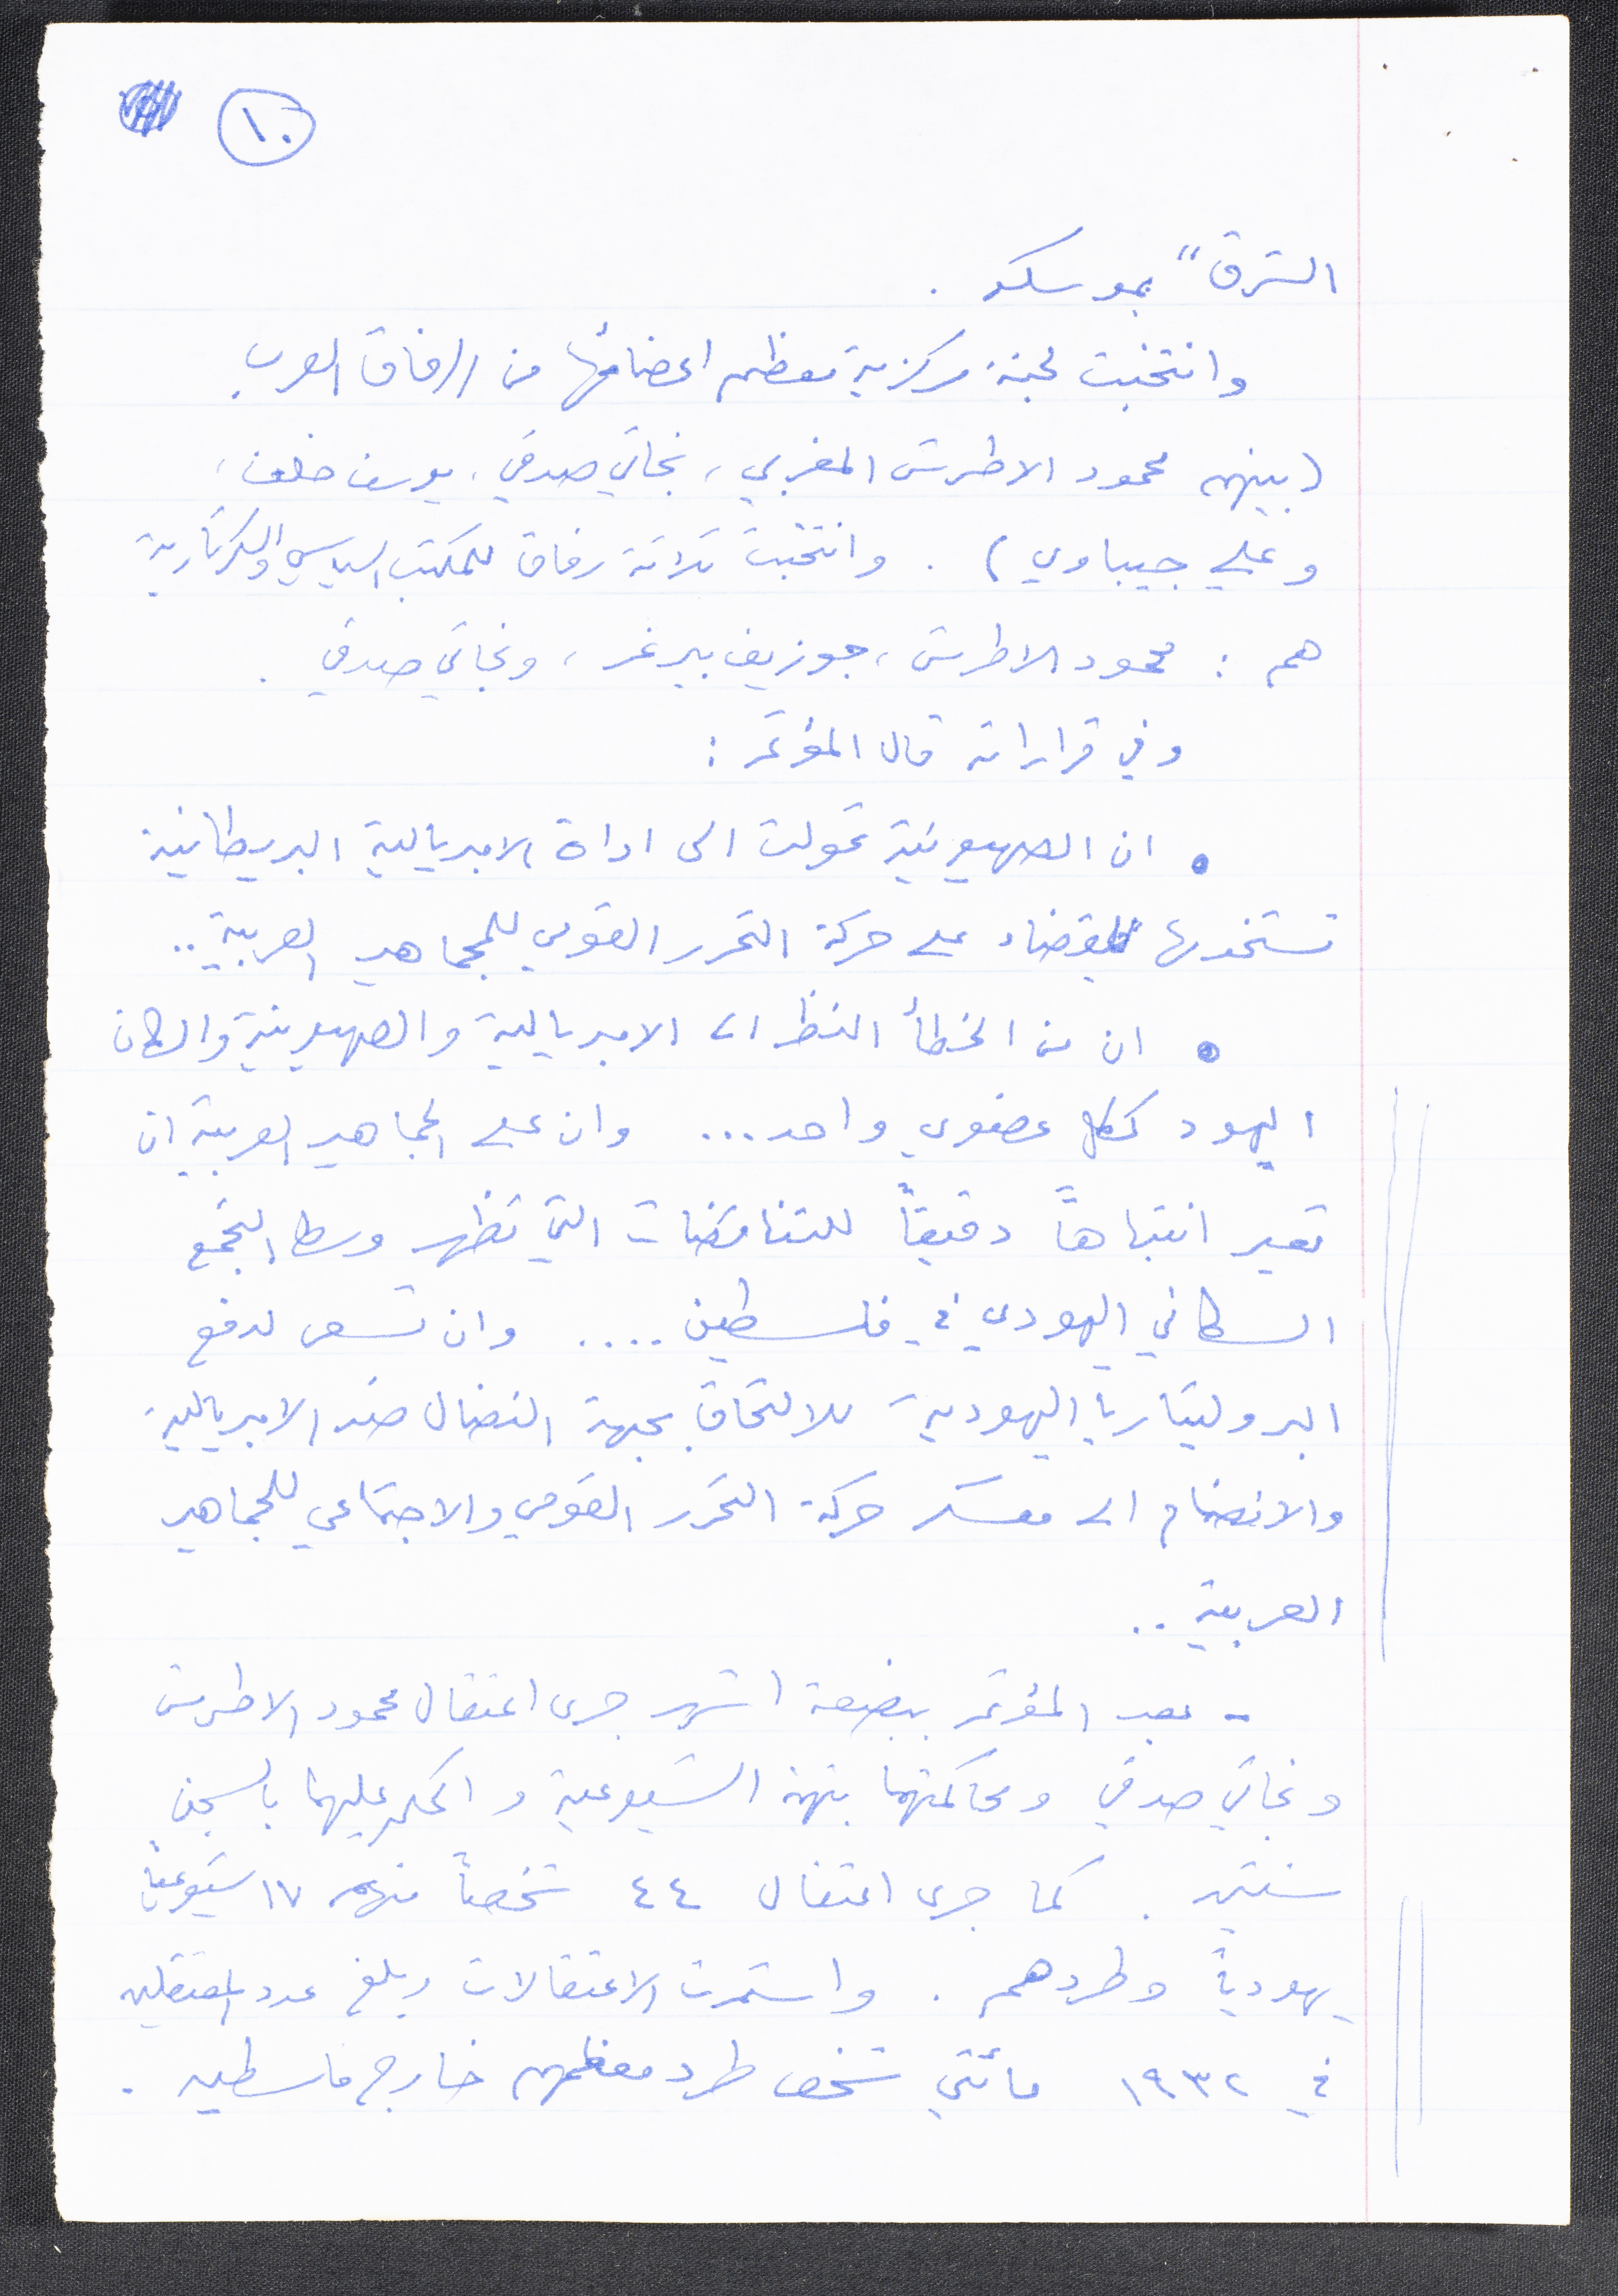 ١٠
الشرق" بموسكو .
وانتخبت لجنة مركزية معظم اعضائها من الرفاق العرب
(بينهم محمود الاطرش المغربي، نجاتي صدقي، يوسف خلف،
وعلي جيباوي) . وانتخبت ثلاثة رفاق للمكتب السياسي والسكرتارية
هم : محمود الاطرش، جوزيف بيرغر، ونجاتي صدقي .
وفي قراراته قال المؤتمر :
• ان الصهيونية تحولت الى اداة الامبريالية البريطانية
تستخدمها للقضاء على حركة التحرر القومي للجماهير العربية ..
• ان من الخطأ النظر الى الامبريالية والصهيونية والسكان
اليهود ككل عضوي واحد ... وان على الجماهير العربية ان
تعير انتباهاً دقيقاً للتناقضات التي تظهر وسط التجمع
السكاني اليهودي في فلسطين .... وان تسعى لدفع
البروليتاريا اليهودية للالتحاق بجبهة النضال ضد الامبريالية
والانضمام الى معسكر حركة التحرر القومي والاجتماعي للجماهير
العربية ..
- بعد المؤتمر ببضعة اشهر جرى اعتقال محمود الاطرش
ونجاتي صدقي ومحاكمتهما بتهمة الشيوعية والحكم عليهما بالسجن
سنتين . كما جرى اعتقال ٤٤ شخصاً منهم ١٧ شيوعياً
يهودياً وطردهم . واستمرت الاعتقالات وبلغ عدد المعتقلين
في ١٩٣٢ مائتي شخص طرد معظمهم خارج فلسطين .